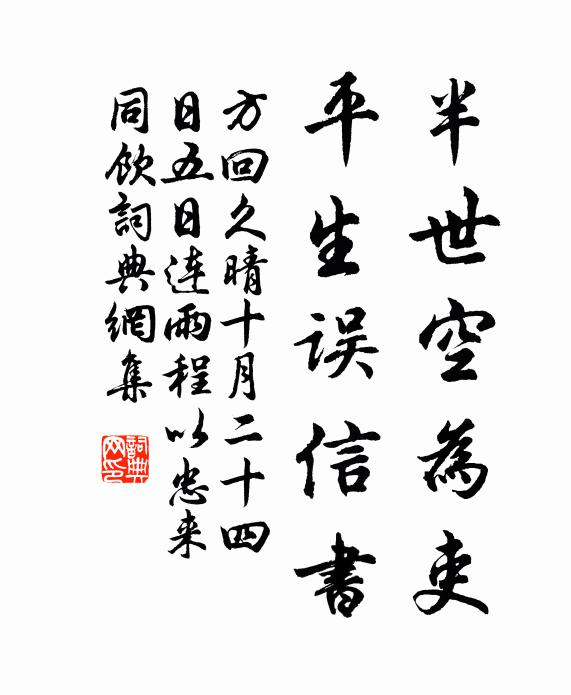 半世空為吏
平生误信書
方回久晴十月二十四
日五日連雨程以忠来
同飲詞典網集
詞典
网印